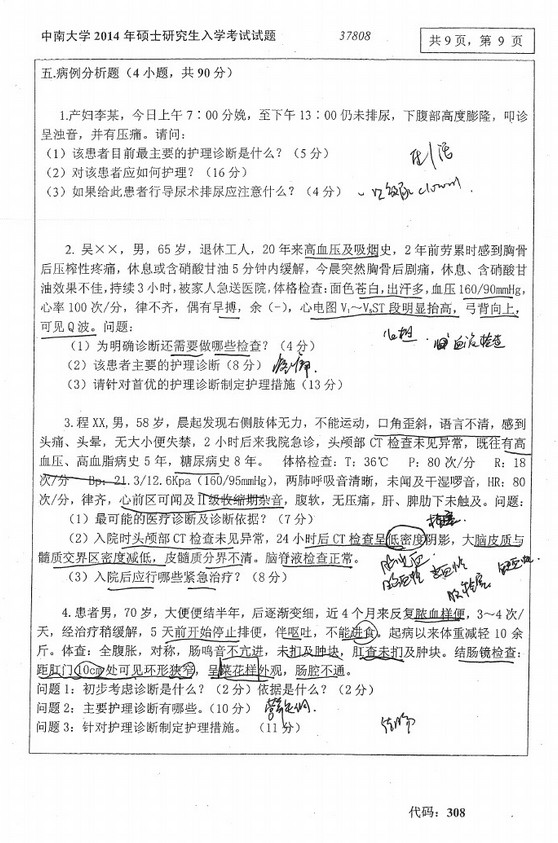 中南大学 2014 年硕士研究生入学考试试题
37808
共 9 页，第 9 页
五.病例分析题（4 小题，共 90 分）
1.产妇李某，今日上午 7：00 分娩，至下午 13：00 仍未排尿，下腹部高度膨隆，叩诊
呈浊音，并有压痛。请问：
（1）该患者目前最主要的护理诊断是什么？（5 分）
（2）对该患者应如何护理？（16 分）
（3）如果给此患者行导尿术排尿应注意什么？（4 分）
2. 吴××，男，65 岁，退休工人，20 年来高血压及吸烟史，2 年前劳累时感到胸骨
后压榨性疼痛，休息或含硝酸甘油 5 分钟内缓解，今晨突然胸骨后剧痛，休息、含硝酸甘
油效果不佳，持续 3 小时，被家人急送医院，体格检查：面色苍白，出汗多，血压 160/90mmHg，
心率 100 次/分，律不齐，偶有早搏，余（-），心电图 V₁～V₆ST 段明显抬高，弓背向上，
可见 Q 波。问题：
（1）为明确诊断还需要做哪些检查？（4 分）
（2）该患者主要的护理诊断（8 分）
（3）请针对首优的护理诊断制定护理措施（13 分）
3.程 XX,男，58 岁，晨起发现右侧肢体无力，不能运动，口角歪斜，语言不清，感到
头痛、头晕，无大小便失禁，2 小时后来我院急诊，头颅部 CT 检查未见异常，既往有高
血压、高血脂病史 5 年，糖尿病史 8 年。 体格检查：T：36℃ P：80 次/分 R：18
次/分 Bp：21.3/12.6Kpa（160/95mmHg），两肺呼吸音清晰，未闻及干湿啰音，HR：80
次/分，律齐，心前区可闻及II级收缩期杂音，腹软，无压痛，肝、脾肋下未触及。问题：
（1）最可能的医疗诊断及诊断依据？（7 分）
（2）入院时头颅部 CT 检查未见异常，24 小时后 CT 检查呈低密度阴影，大脑皮质与
髓质交界区密度减低，皮髓质分界不清。脑脊液检查正常。
（3）入院后应行哪些紧急治疗？（8 分）
4.患者男，70 岁，大便便结半年，后逐渐变细，近 4 个月来反复脓血样便，3～4 次/
天，经治疗稍缓解，5 天前开始停止排便，伴呕吐，不能进食，起病以来体重减轻 10 余
斤。体查：全腹胀，对称，肠鸣音不亢进，未扪及肿块，肛查未扪及肿块。结肠镜检查：
距肛门 10cm 处可见环形狭窄，呈菜花样外观，肠腔不通。
问题 1：初步考虑诊断是什么？（2 分）依据是什么？（2 分）
问题 2：主要护理诊断有哪些。（10 分）
问题 3：针对护理诊断制定护理措施。 （11 分）
代码：308